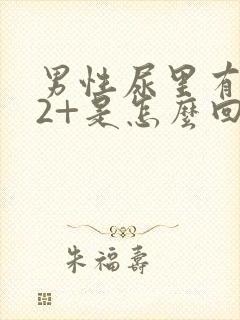 男性尿里有
2+是怎麼回
朱福壽